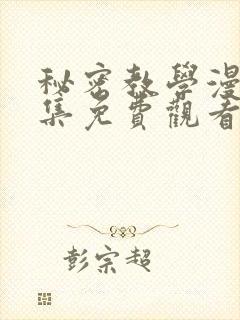 秘密教學漫
集免費觀看
彭宗超